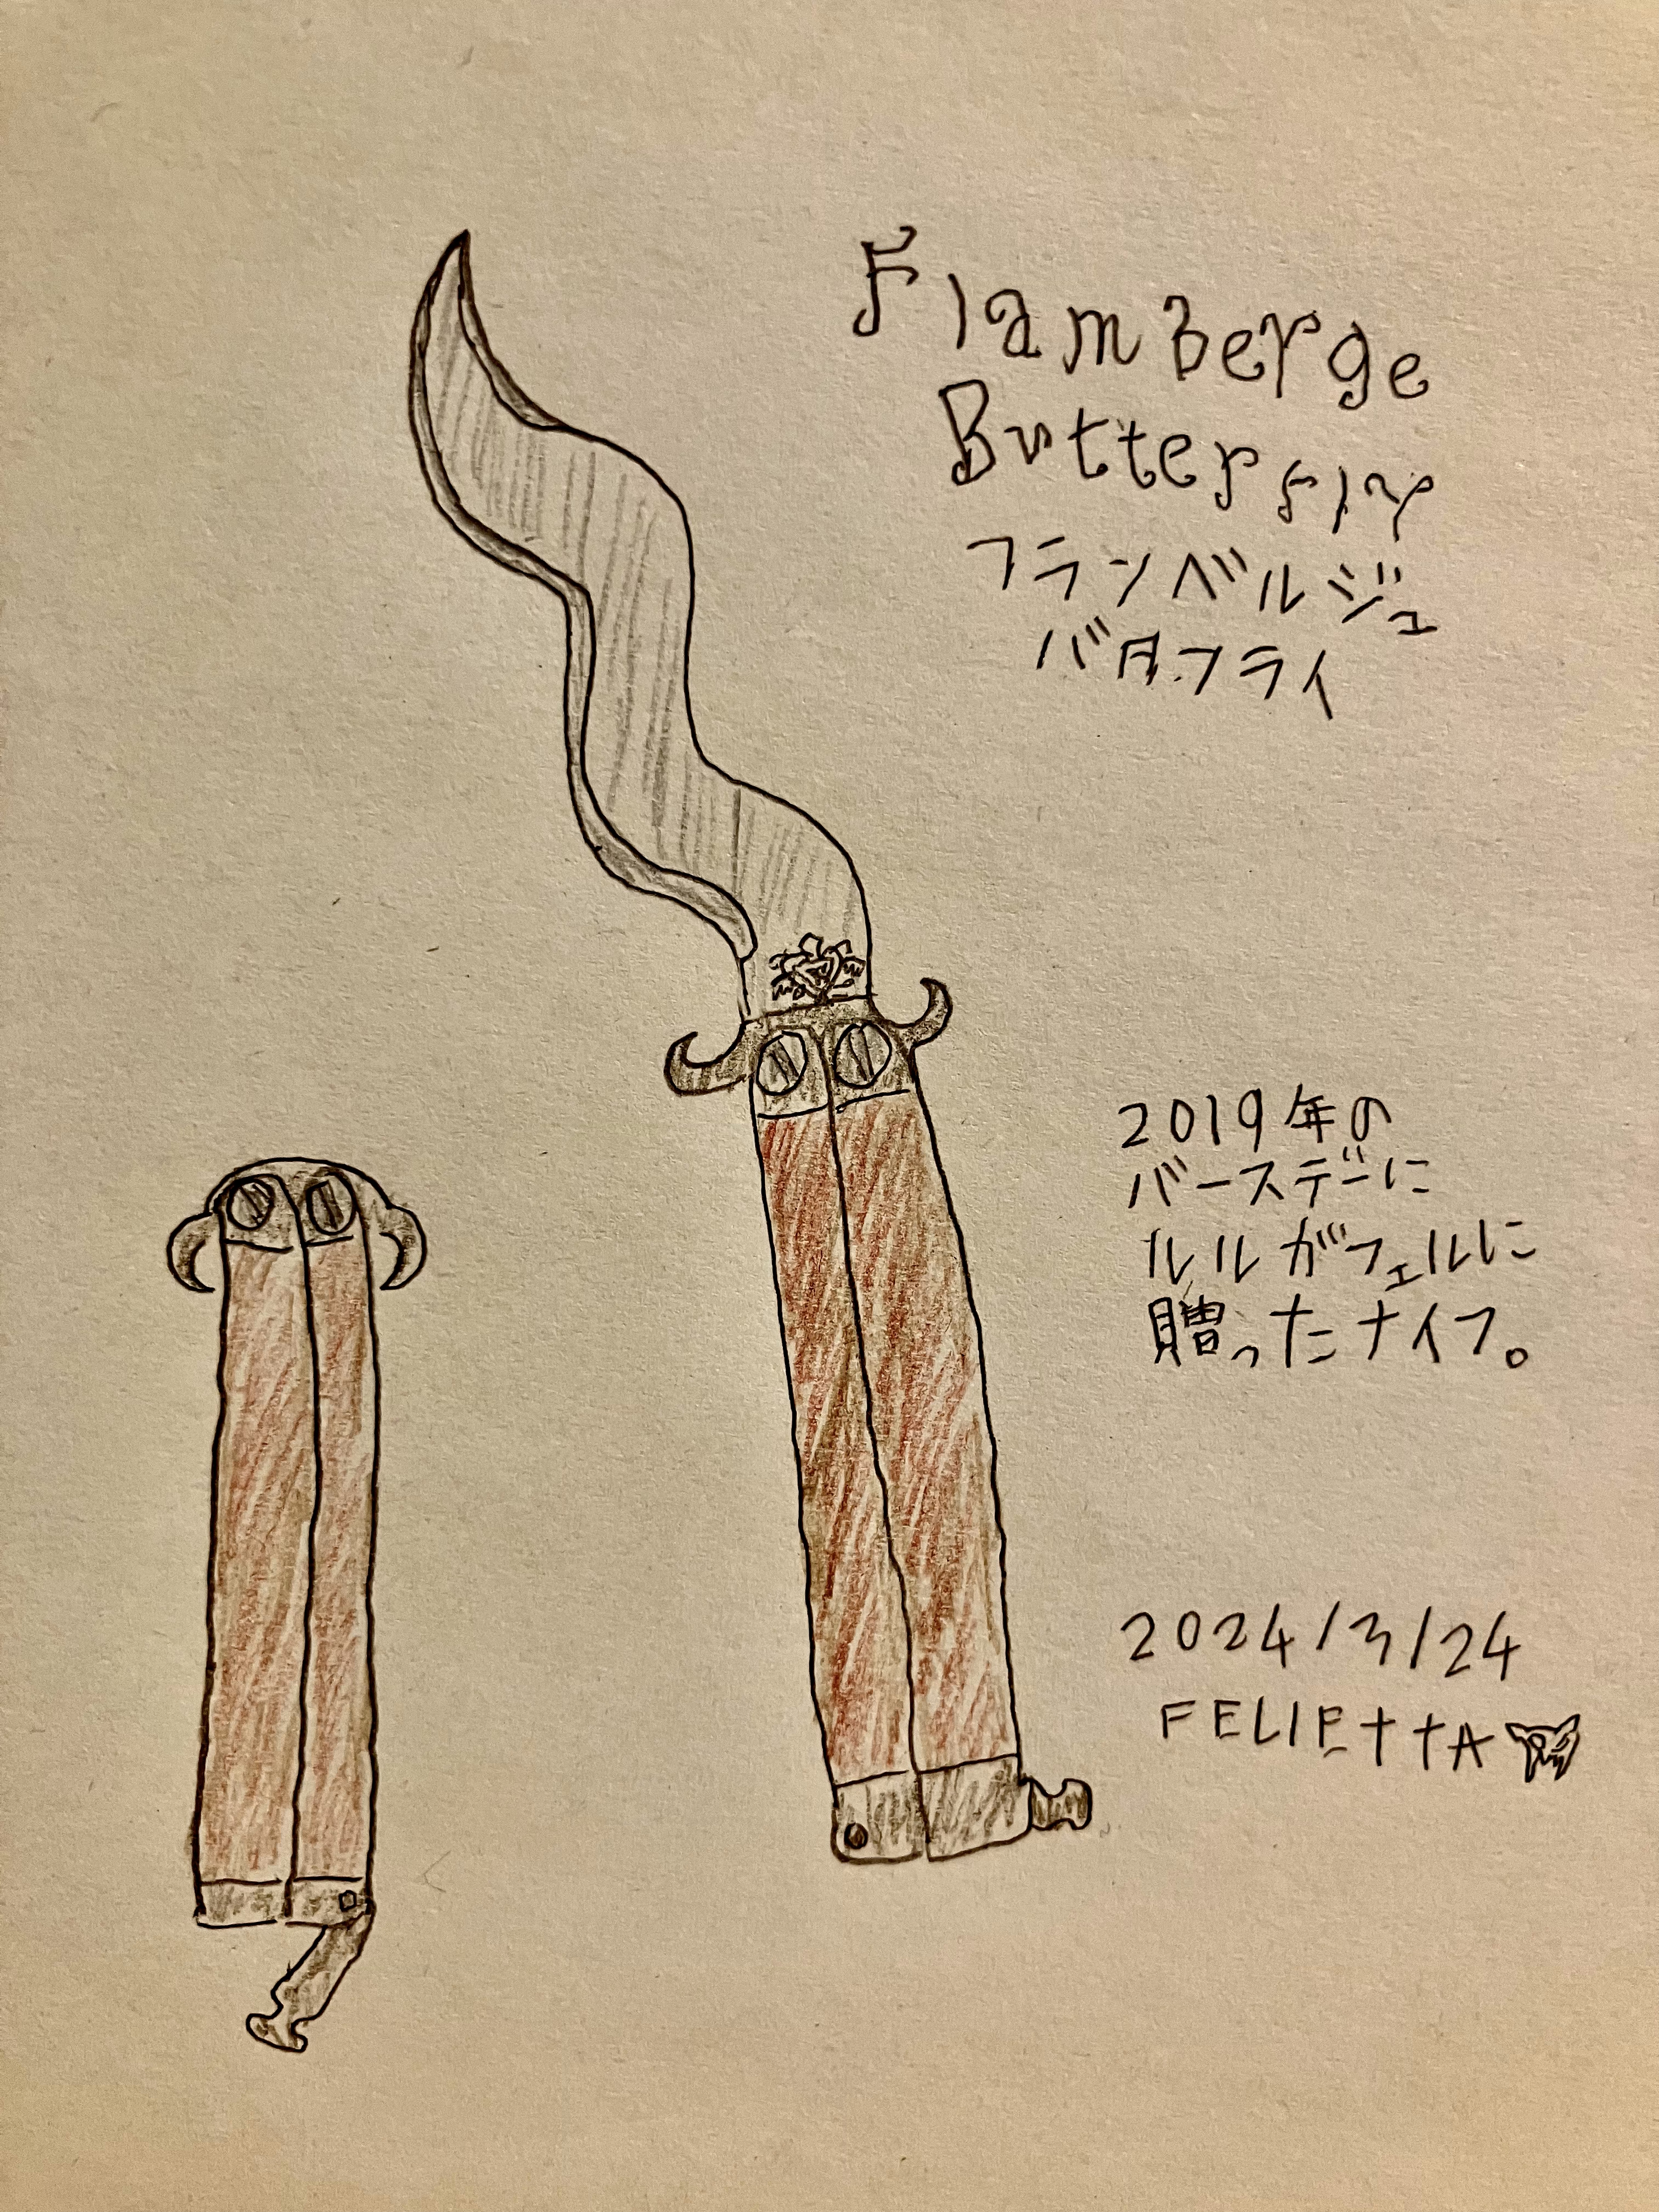 FlamBerge
Butterfly
フランベルジュ
バタフライ
2019年の
バースデーに
ルルがフェルに
贈ったナイフ。
2024/3/24
FELIEttA